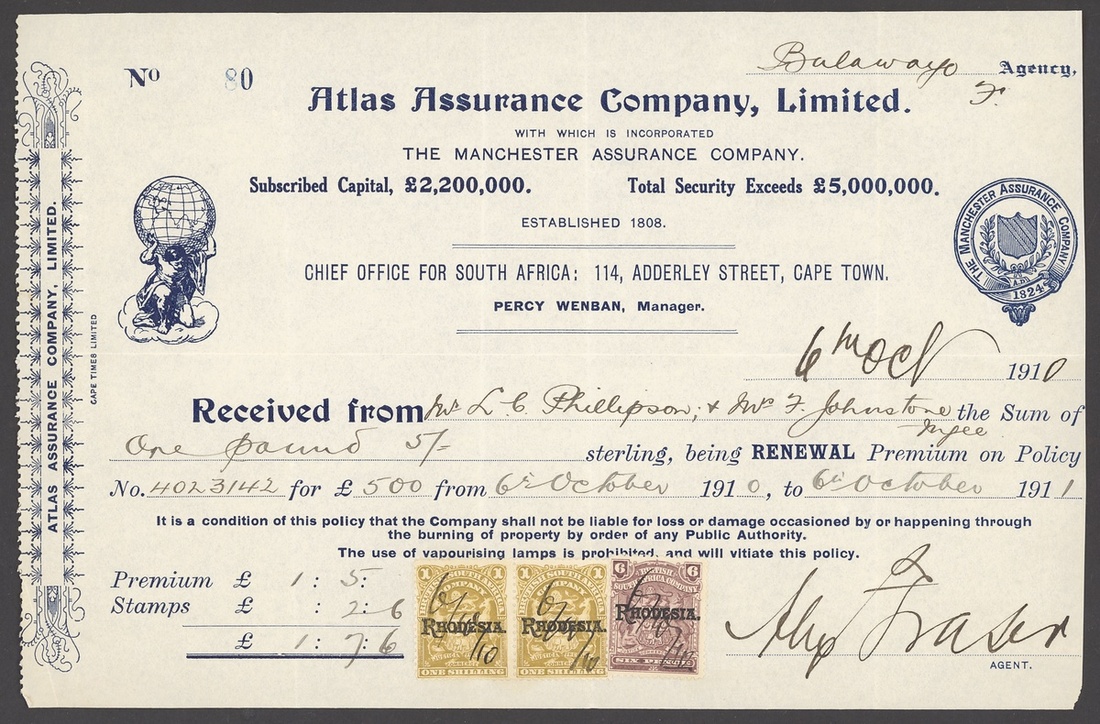 No 80
Bulawayo Agency,
F.
Atlas Assurance Company, Limited.
WITH WHICH IS INCORPORATED
THE MANCHESTER ASSURANCE COMPANY.
Subscribed Capital, £2,200,000. Total Security Exceeds £5,000,000.
ESTABLISHED 1808.
CHIEF OFFICE FOR SOUTH AFRICA: 114, ADDERLEY STREET, CAPE TOWN.
PERCY WENBAN, Manager.
THE MANCHESTER ASSURANCE COMPANY
A.D.
1824
ATLAS ASSURANCE COMPANY, LIMITED.
CAPE TIMES LIMITED
6th Oct 1910
Received from Mr L. C. Phillipson, & Mr F. Johnstone the Sum of
One pound 5/- sterling, being RENEWAL Premium on Policy
No. 4023142 for £ 500 from 6th October 1910, to 6th October 1911
It is a condition of this policy that the Company shall not be liable for loss or damage occasioned by or happening through
the burning of property by order of any Public Authority.
The use of vapourising lamps is prohibited, and will vitiate this policy.
Premium £ 1 : 5 :
Stamps £ : 2 : 6
£ 1 : 7 : 6
1 BRITISH SOUTH AFRICA COMPANY 1
RHODESIA.
ONE SHILLING
1 BRITISH SOUTH AFRICA COMPANY 1
RHODESIA.
ONE SHILLING
6 BRITISH SOUTH AFRICA COMPANY 6
RHODESIA.
SIX PENCE
Alex Fraser
AGENT.